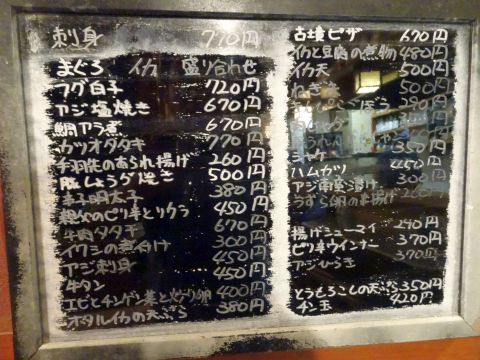 刺身 770円
まぐろ イカ 盛り合わせ
フグ白子 720円
アジ塩焼き 670円
鯛アラ煮 670円
カツオタタキ 770円
手羽先のあられ揚げ 260円
豚しょうが焼き 500円
辛子明太子 380円
450円
牛肉タタキ 670円
イワシの煮付け 300円
アジ刺身 450円
牛タン 450円
エビとチンゲン菜と 卵 400円
ホタルイカの天ぷら 380円
古墳ピザ 670円
イカと豆腐の煮物 480円
イカ天 500円
ねぎ 500円
きんぴらごぼう 290円
シャケ
ハムカツ 450円
アジ南蛮漬け 300円
うずら卵の串揚げ
揚げシューマイ 240円
ピリ辛ウインナー 370円
アジひらき 370円
とうもろこしの天ぷら 350円
チン玉 420円